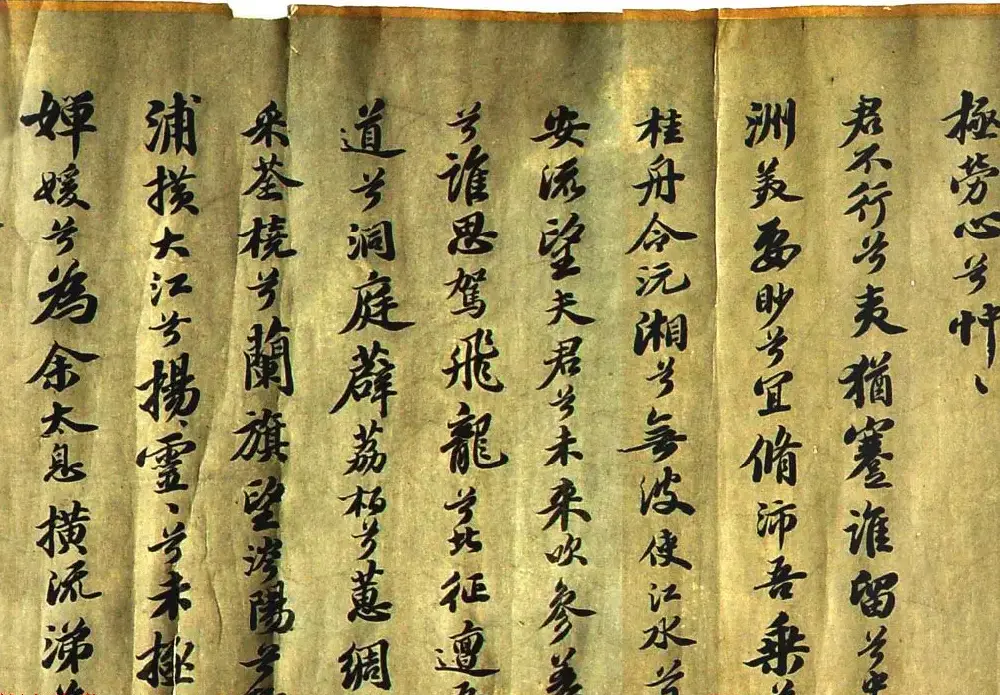 極勞心兮忡〻
君不行兮夷猶蹇誰留兮中
洲美要眇兮宜脩沛吾乗
桂舟令沅湘兮無波使江水兮
安流望夫君兮未来吹參差
兮誰思駕飛龍兮北征邅
道兮洞庭薜荔栢兮蕙綢
采荃橈兮蘭旗望涔陽兮
浦横大江兮揚靈〻兮未極
嬋媛兮為余太息橫流涕